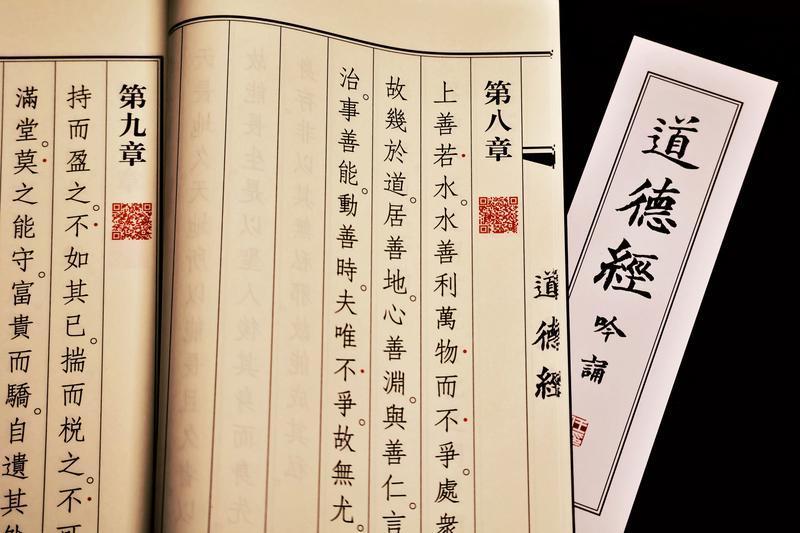 道德經
吟誦
道德經
第八章
上善若水。水善利萬物而不爭。處衆
故幾於道。居善地。心善淵。與善仁。言
治。事善能。動善時。夫唯不爭。故無尤。
第九章
持而盈之。不如其已。揣而梲之。不可
滿堂。莫之能守。富貴而驕。自遺其